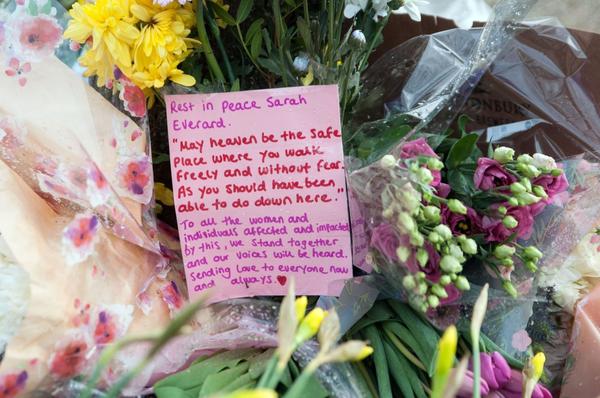 Rest in Peace Sarah
Everard.
"May heaven be the safe
Place where you walk
freely and without fear.
As you should have been
able to do down here."
To all the women and
individuals affected and impacted
by this, we stand together
and our voices will be heard.
Sending love to everyone now
and always.
ONBURY